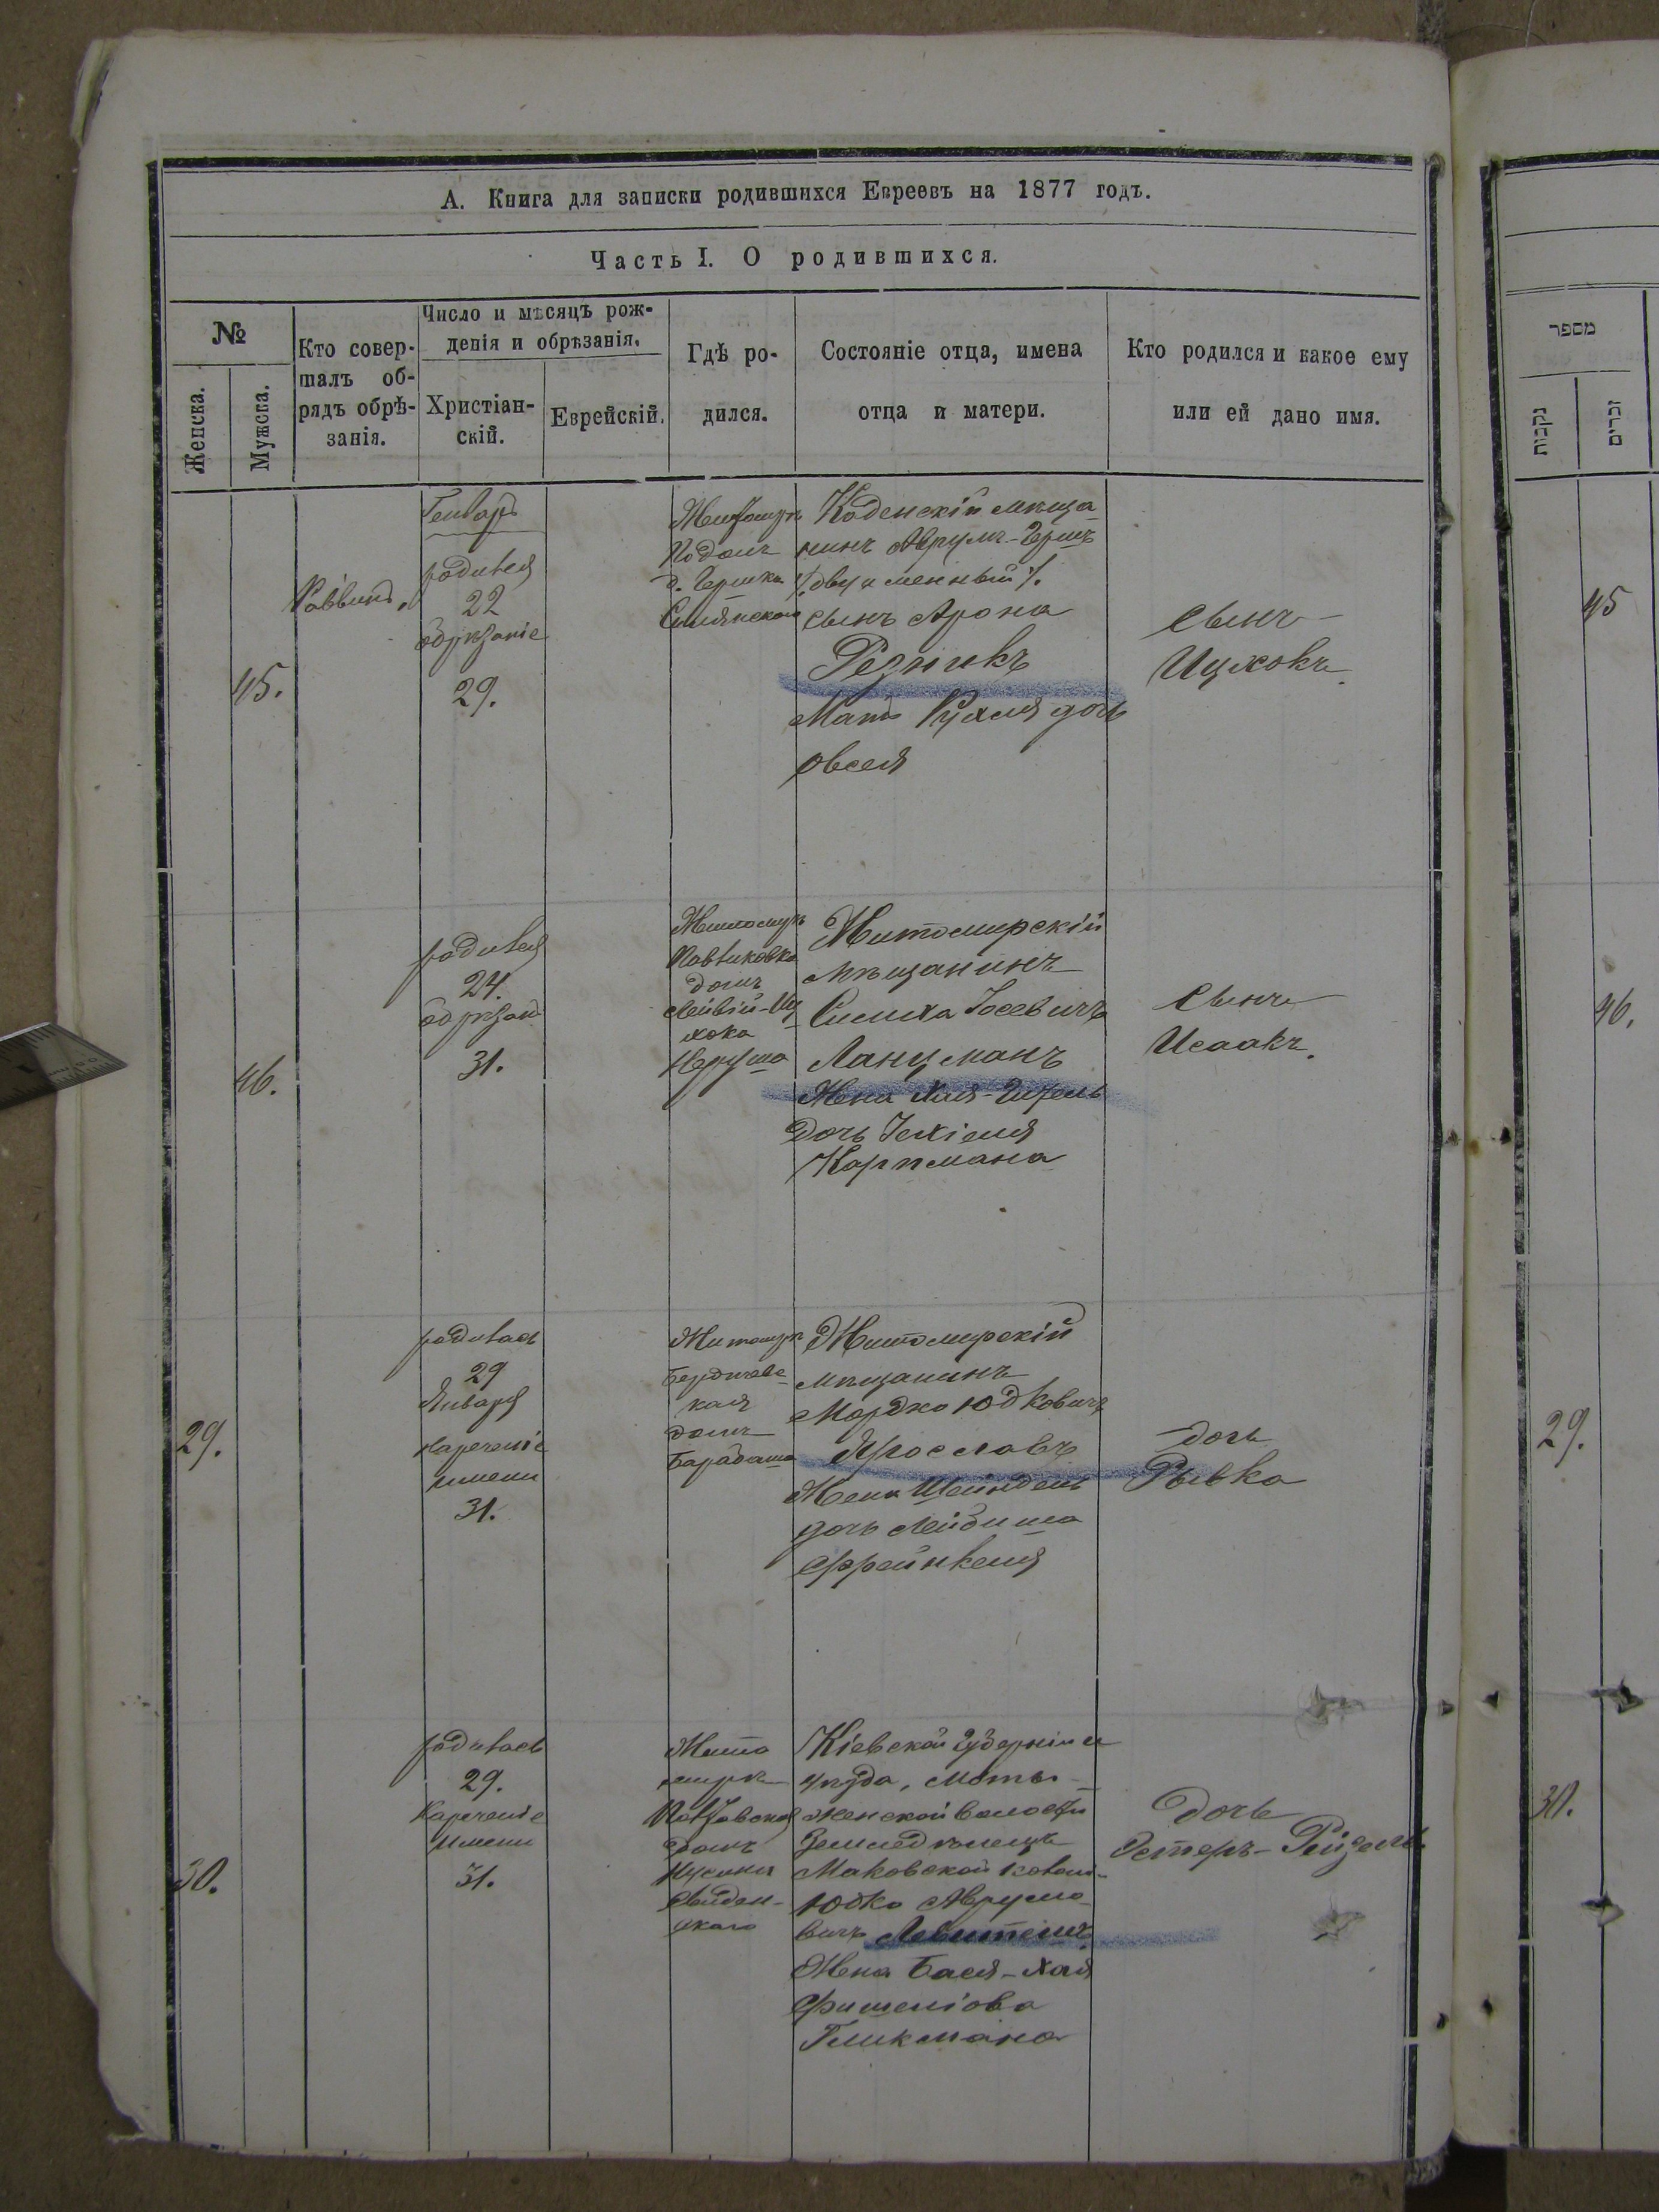 А. Книга для записки родившихся Евреевъ на 1877 годъ.
Часть I. О родившихся.
№
Женска.
Мужска.
Кто совер-
шалъ об-
рядъ обрѣ-
занія.
Число и мѣсяцъ рож-
денія и обрѣзанія.
Христіан-
скій.
Еврейскій.
Гдѣ ро-
дился.
Состояніе отца, имена
отца и матери.
Кто родился и какое ему
или ей дано имя.
45.
Раввинъ.
Генварь
родился
22
обрѣзаніе
29.
Житомиръ
д. Гершка
Коденскій мѣща-
нинъ Аврумъ-Гершъ
/:двуименный:/.
сынъ Арона
Резникъ
Мать Рухля дочь
Овсея
сынъ
Ицхокъ.
46.
родился
24.
обрѣзан
31.
Житомиръ
домъ
Лейвій-Иц
хока
Житомирскій
мѣщанинъ
Симха Іосевичъ
Ланцманъ
Жена Хая-Гитель
дочь Іехіеля
Карпмана
сынъ
Исаакъ.
29.
родилась
29
Января
нареченіе
имени
31.
Житомиръ
Бердичевс-
кая
домъ
Барабаша
Житомирскій
мѣщанинъ
Мордко Юдковичъ
Ярославъ
Жена Шейндель
дочь Лейбиша
Френкеля
дочь
Рывка
30.
родилась
29.
Нареченіе
имени
31.
Жито
миръ
домъ
Нусина
Кіевской губерніи и
уѣзда, Моты-
женской волости
Земледѣлецъ
Маковской колон.
Юдко Аврумо-
вичъ Левитенъ
Жена Бася-Хая
Фишеліова
Гликмана
дочь
Эстеръ-Рейзель.
מספר
נקבות
זכרים
45
46.
29.
30.